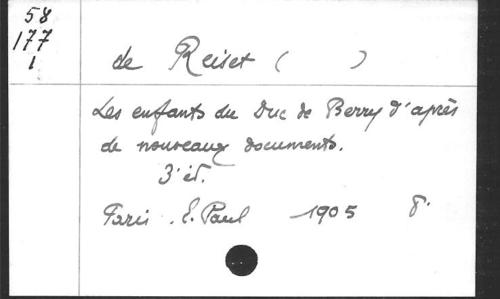 58
177
1
de Reiset ( )
Les enfants du Duc de Berry d'après
de nouveaux documents.
3' éd.
Paris. E. Paul 1905 8°.